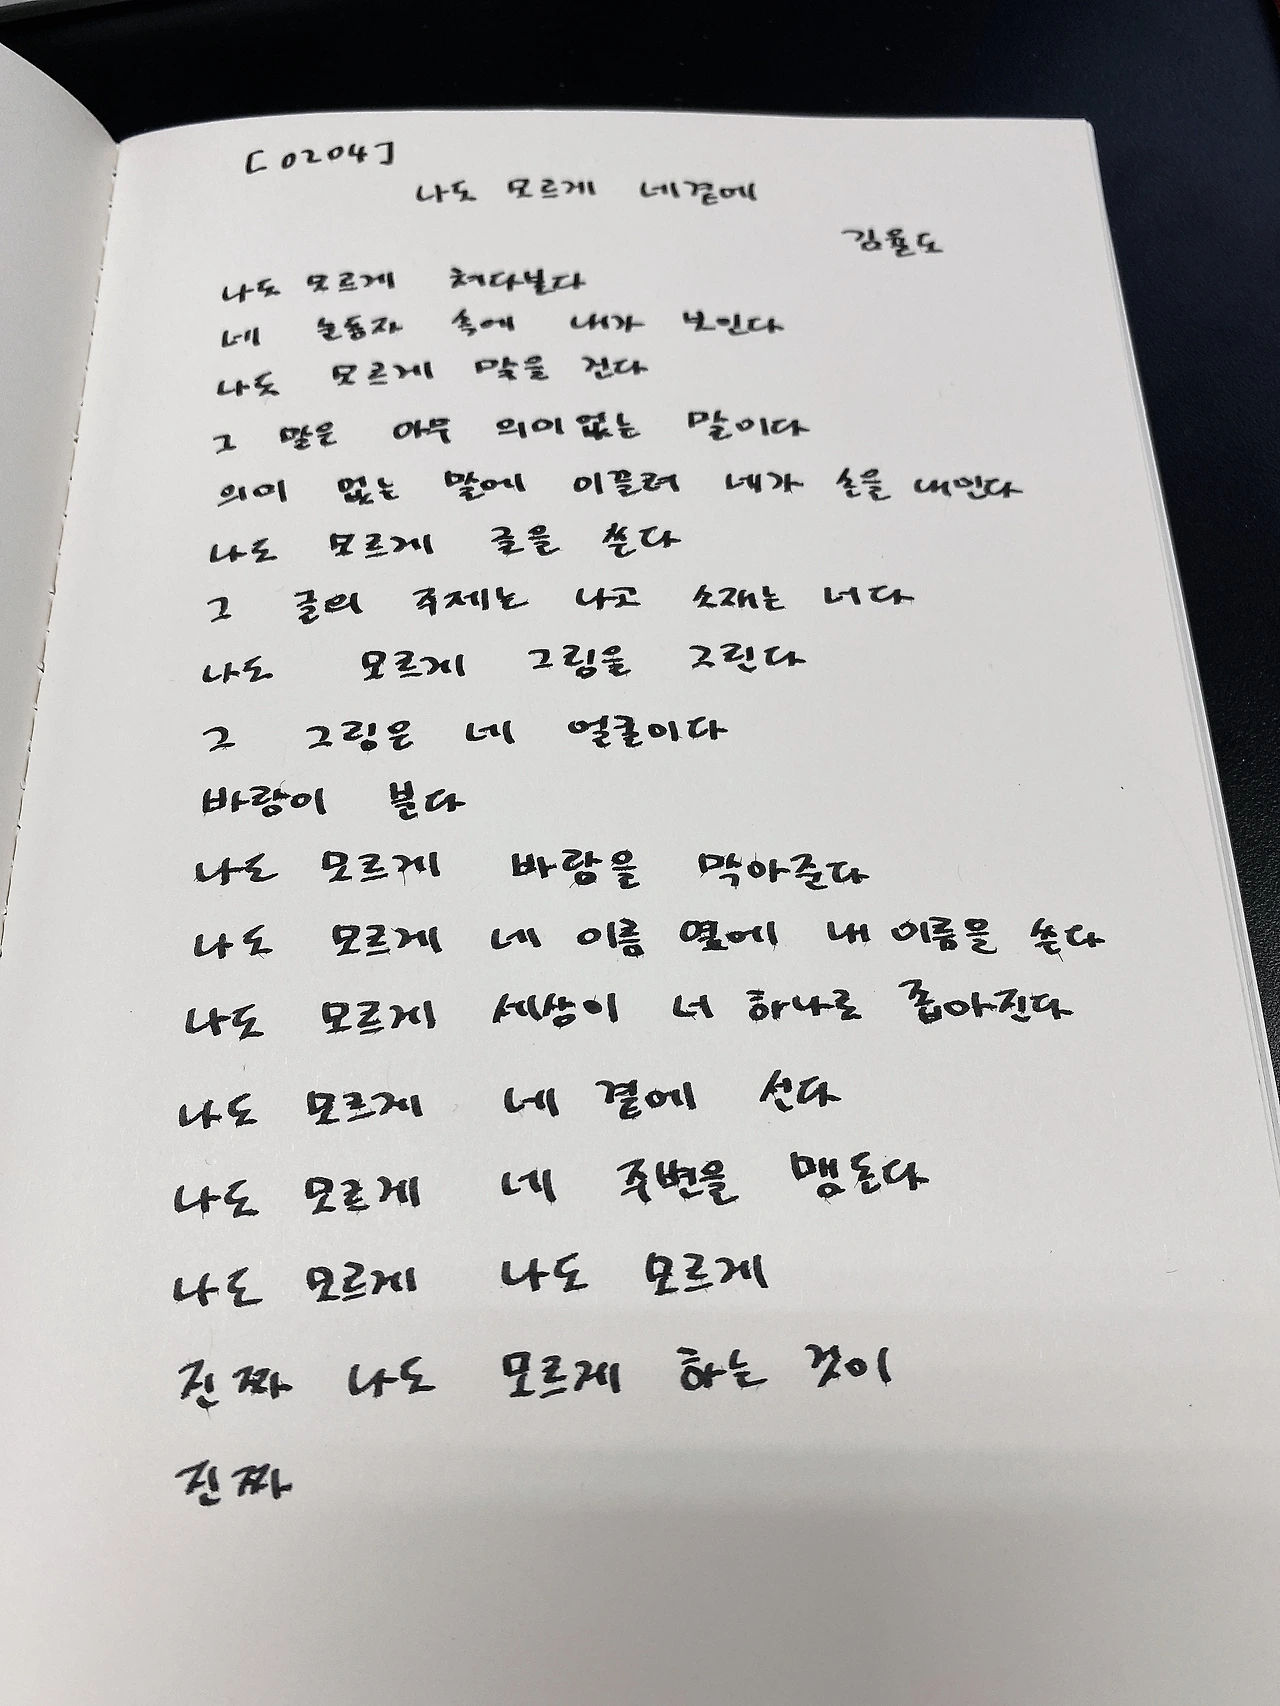 [0204]
나도 모르게 네곁에
김율도
나도 모르게 쳐다본다
네 눈동자 속에 내가 보인다
나도 모르게 말을 건다
그 말은 아무 의미없는 말이다
의미 없는 말에 이끌려 네가 손을 내민다
나도 모르게 글을 쓴다
그 글의 주제는 나고 소재는 너다
나도 모르게 그림을 그린다
그 그림은 네 얼굴이다
바람이 분다
나도 모르게 바람을 막아준다
나도 모르게 네 이름 옆에 내 이름을 쓴다
나도 모르게 세상이 너 하나로 좁아진다
나도 모르게 네 곁에 선다
나도 모르게 네 주변을 맴돈다
나도 모르게 나도 모르게
진짜 나도 모르게 하는 것이
진짜